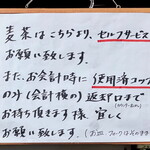 麦茶はこちらより、セルフサービスで
お願い致します。
また、お会計時に使用済コップ
のみ(会計横の)返却口まで
お持ち頂きます様 宜しく
お願い致します。(お皿、フォークはそのまま